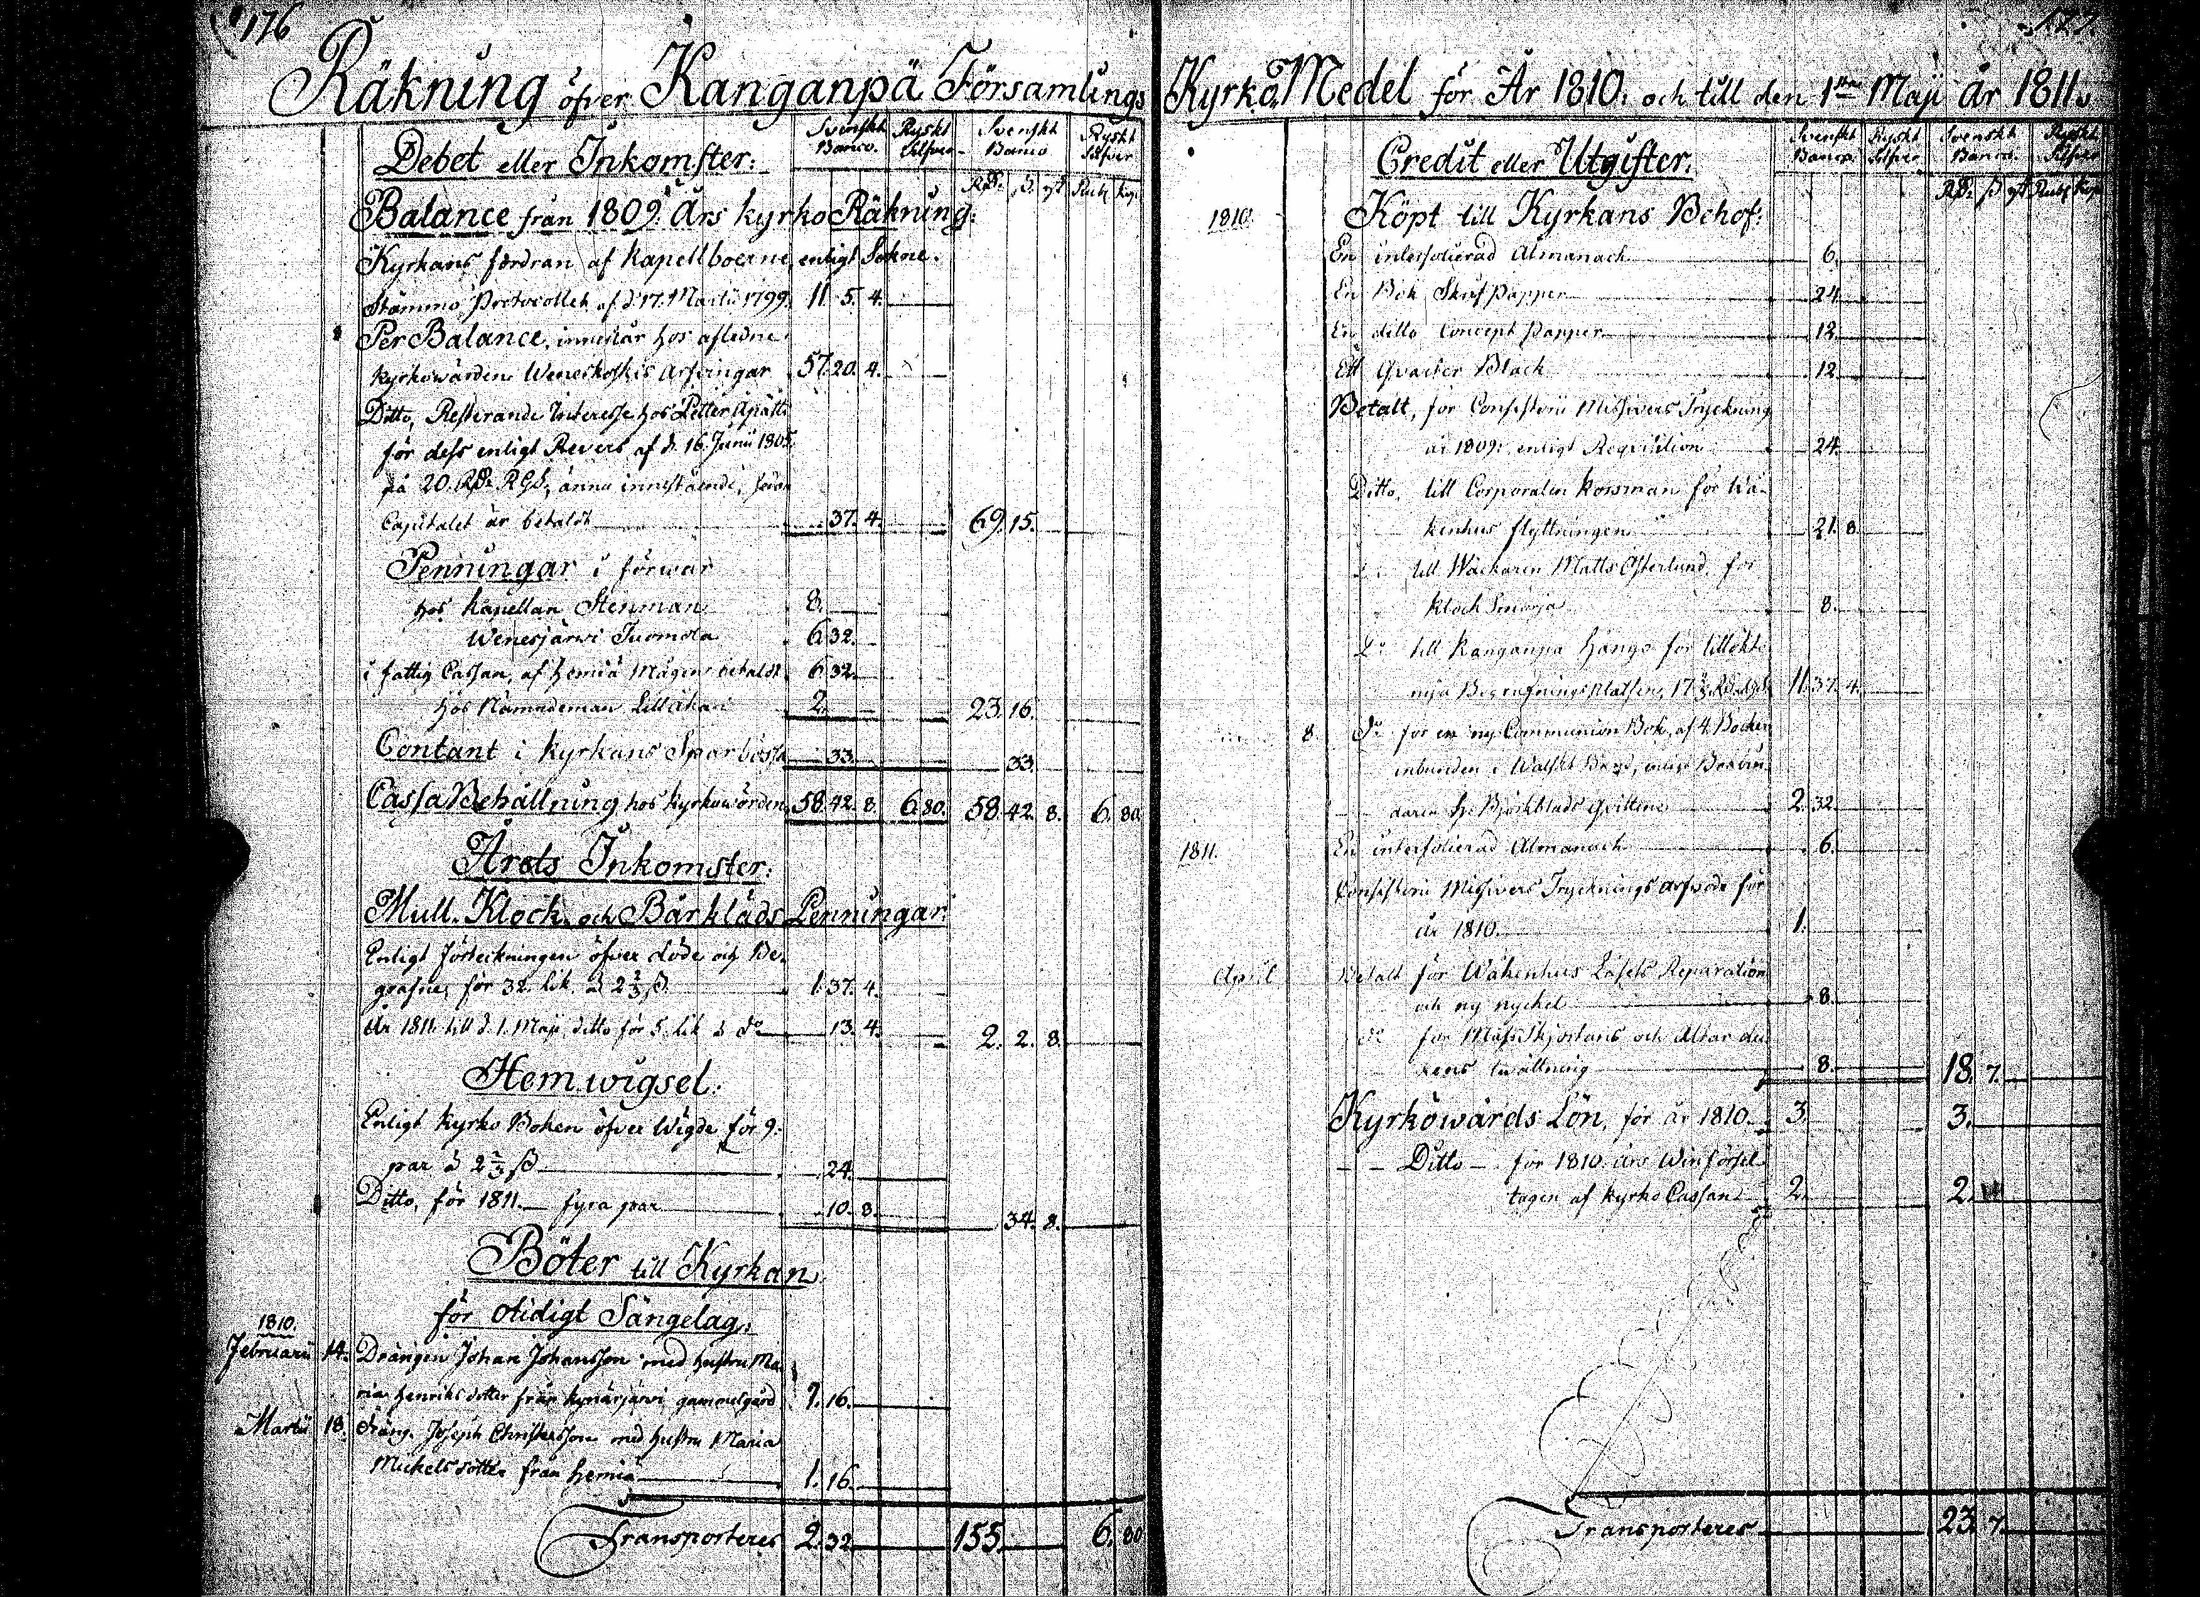 176
Räkning öfver Kanganpä Församlings
Debet eller Inkomster:
Svenskt Banco. Ryskt Silfver Svenskt Banco Ryskt Silfver
Rd. ß. rst. Rub. Kop.
Balance från 1809. Års kyrko Räkning:
Kyrkans fordran af Kapellboerne, enligt Sokne-
Stämmo Protocollet af d. 17. Martii 1799. 11. 5. 4.
Per Balance, innestår hos aflidne
kyrkowärden Weneskoskis Arfvingar 57. 20. 4.
Ditto, Resterande Interesse hos Petter
för dess enligt Revers af d. 16. Junii 1805
på 20. Rd. RGs, ännu innestående,
Capitalet är betaldt 37. 4. 69. 15.
Penningar i förwar
hos Kapellan Stenman 8.
Wenesjärwi Tuomola 6. 32.
i fattig Cassan, af Hemiä Mågen betaldt 6. 32.
hos Nämndeman 2. 23. 16.
Contant i Kyrkans Sparbössa 33. 33.
Cassa Behållning hos Kyrkowärden 58. 42. 8. 6. 80. 58. 42. 8. 6. 80.
Årets Inkomster:
Mull-Klock- och Bårkläds Penningar:
Enligt förteckningen öfver döde och Be-
grafne, för 32. lik à 2 2/3 ß. 1. 37. 4.
År 1811 till d. 1. Maji, ditto för 5. lik à do 13. 4. 2. 2. 8.
Hemwigsel:
Enligt kyrko Boken öfver Wigde för 9.
par à 2 2/3 ß 24.
Ditto, för 1811. fyra par 10. 8. 34. 8.
Böter till Kyrkan
för otidigt Sängelag:
1810.
Februarii 14. Drängen Johan Johansson med hustru Ma-
ria Henriksdotter från kynäsjärwi gammelgård 1. 16.
Martii 18. Dräng. Joseph Christersson med hustru Maria
Mickelsdotter från Hemiä 1. 16.
Transporteres 2. 32. 155. 6. 80
177.
Kyrko Medel för År 1810. och till den 1sta Maji år 1811.
Credit eller Utgifter:
Svenskt Banco. Ryskt Silfver Svenskt Banco. Ryskt Silfver
Rd. ß rst Rub. Kop
1810. Köpt till Kyrkans Behof:
En interfolierad Almanach 6.
En Bok Skrif Papper 24.
En ditto Concept Papper 12.
Ett Qvarter Bläck 12.
Betalt, för Consistorii Missivers Tryckning
år 1809: enligt Reqvisition 24.
Ditto, till Corporalen Korsman för Wå-
kenhus flyttningen 21. 8.
till Wäckaren Matts Österlund, för
klock Smörja 8.
Do till Kanganpä Hånga för tillökte
nya Begrafningsplatsen, 11. 37. 4.
8. Do för en ny Communion Bok, af 4. Böcker
inbunden i Walskt Band, enligt Bokbin-
daren Hr. Björkblads Qvittence 2. 32.
1811. En interfolierad Almanach 6.
Consistorii Missivers Trycknings arfwode för
år 1810. 1.
April Betalt för Wåkenhus Låsets Reparation
och ny nyckel 8.
do för Mässskjortans och Altar du-
kens twättning 8. 18. 7.
Kyrkowärds Lön, för år 1810. 3. 3.
Ditto för 1810. års Winförsel
tagen af kyrko Cassan 2. 2.
Transporteres 23. 7.